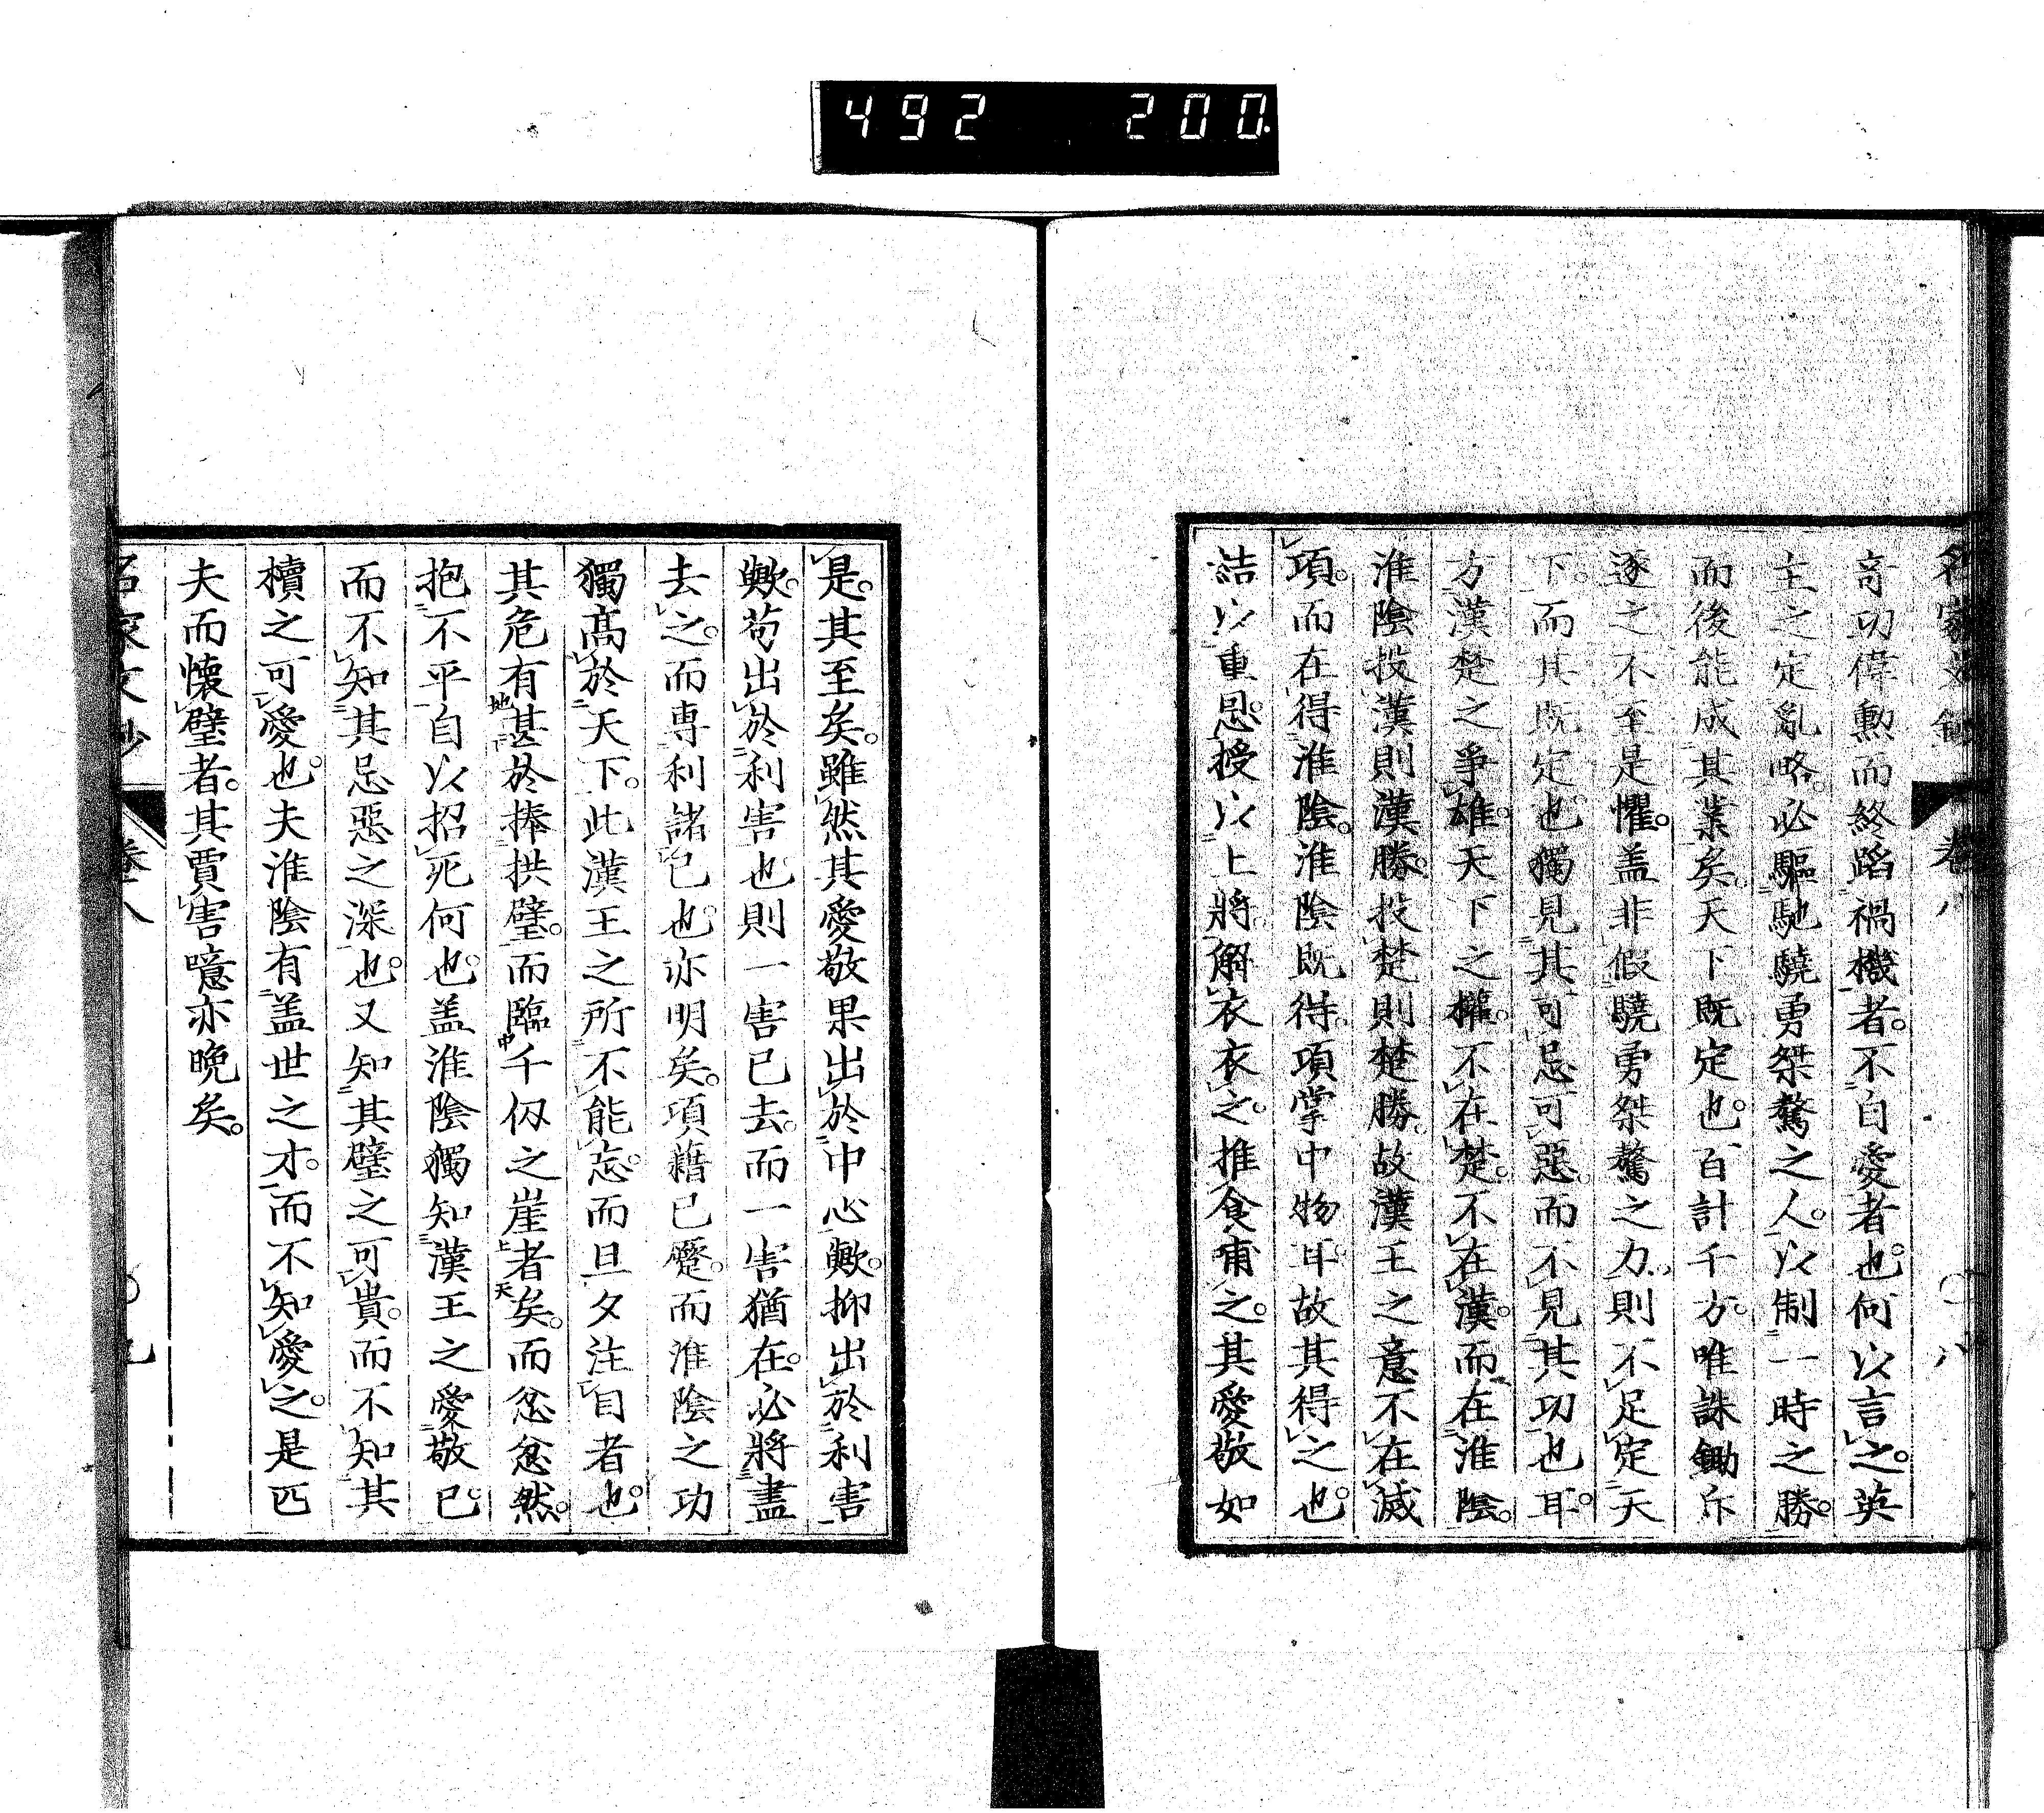 492 200.
奇功偉勲而終蹈禍機者。不自愛者也。何以言之。英
主之定亂略。必驅馳驍勇桀驁之人。以制一時之勝。
而後能成其業矣。天下既定也。百計千方。唯誅鋤斥
逐之不至是懼。盖非假驍勇桀驁之力。則不足定天
下。而其既定也。獨見其可忌可惡。而不見其功也耳。
方漢楚之爭雄。天下之權。不在楚。不在漢。而在淮陰。
淮陰投漢則漢勝。投楚則楚勝。故漢王之意不在滅
項。而在得淮陰。淮陰既得。項掌中物耳。故其得之也
結以重恩。授以上將。解衣衣之。推食食之。其愛敬如
是。其至矣。雖然其愛敬果出於中心歟。抑出於利害
歟。苟出於利害也則一害已去。而一害猶在。必將盡
去之。而専利諸已也。亦明矣。項藉已蹙。而淮陰之功
獨高於天下。此漢王之所不能忘。而旦夕注目者也。
其危有甚於捧拱璧。而臨千仭之崖者矣。而忿忿然。
抱不平自以招死何也。盖淮陰獨知漢王之愛敬已。
而不知其忌惡之深也。又知其璧之可貴。而不知其
櫝之可愛也。夫淮陰有盖世之才。而不知愛之。是匹
夫而懐璧者。其賈害噫亦晩矣。
名家文鈔 卷八